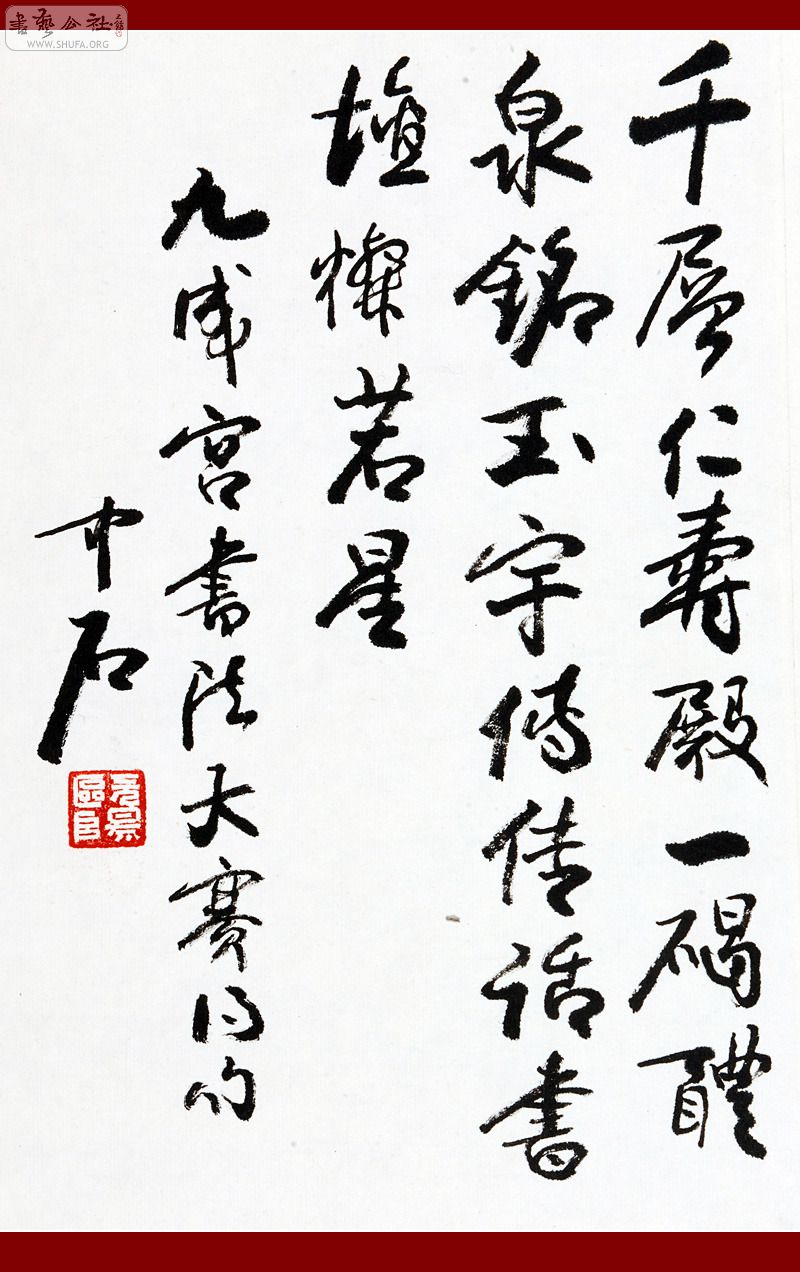 書藝公社
WWW.SHUFA.ORG
千層仁壽殿一碣醴
泉銘玉宇傳佳話書
壇燦若星
九成宮書法大賽得句
中石